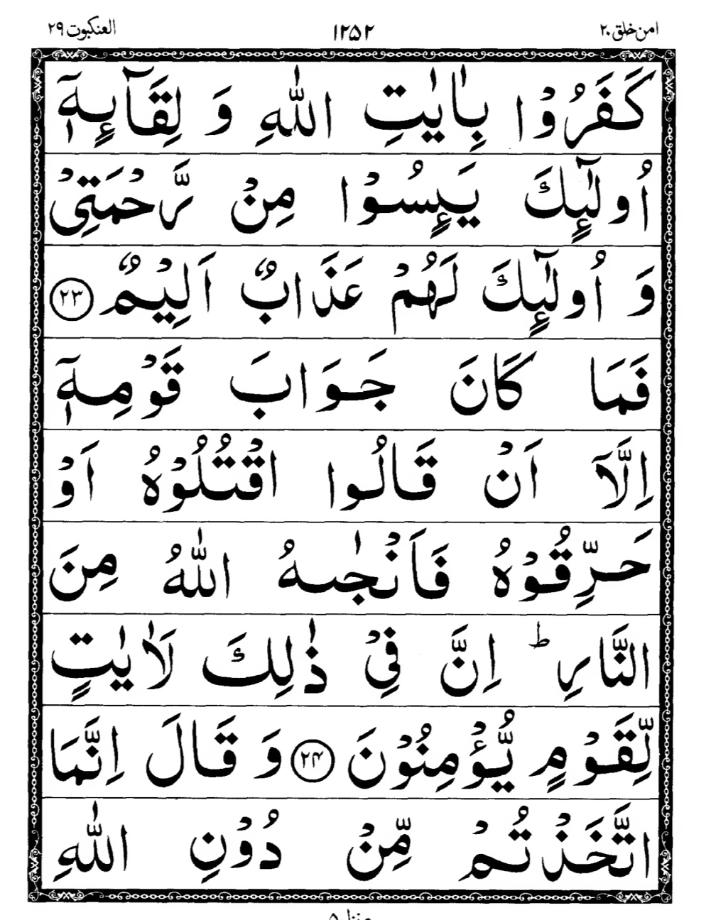 امن خلق ۲۰ ۱۲۵۲ العنکبوت ۲۹
كَفَرُوْا بِاٰيٰتِ اللّٰهِ وَ لِقَآئِهٖۤ
اُولٰٓئِكَ يَئِسُوْا مِنْ رَّحْمَتِیْ
وَ اُولٰٓئِكَ لَهُمْ عَذَابٌ اَلِيْمٌ ﴿۲۳﴾
فَمَا كَانَ جَوَابَ قَوْمِهٖۤ
اِلَّاۤ اَنْ قَالُوا اقْتُلُوْهُ اَوْ
حَرِّقُوْهُ فَاَنْجٰىهُ اللّٰهُ مِنَ
النَّارِ ؕ اِنَّ فِیْ ذٰلِكَ لَاٰيٰتٍ
لِّقَوْمٍ يُّؤْمِنُوْنَ ﴿۲۴﴾ وَ قَالَ اِنَّمَا
اتَّخَذْتُمْ مِّنْ دُوْنِ اللّٰهِ